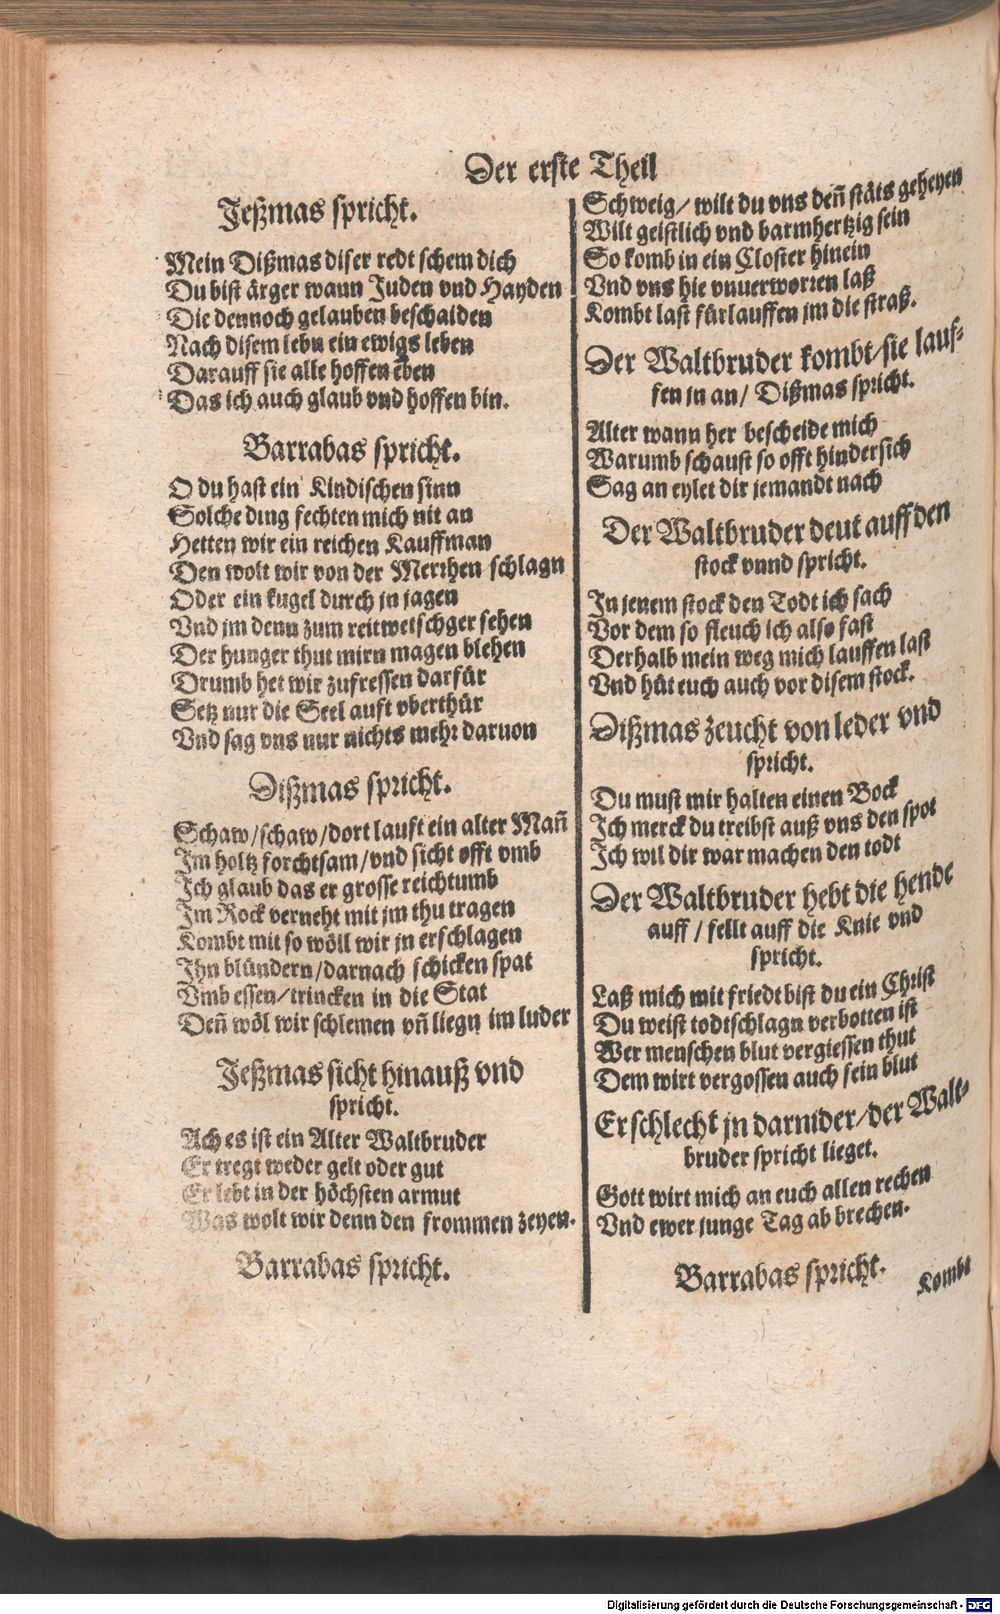 Der erste Theil
Jeßmas spricht.
Mein Dißmas diser redt schem dich
Du bist ärger wann Juden vnd Hayden
Die dennoch gelauben beschaiden
Nach disem lebn ein ewigs leben
Darauff sie alle hoffen eben
Das ich auch glaub vnd hoffen bin.
Barrabas spricht.
O du hast ein Kindischen sinn
Solche ding fechten mich nit an
Hetten wir ein reichen Kauffman
Den wolt wir von der Merrhen schlagn
Oder ein kugel durch jn jagen
Vnd jm denn zum reitwetschger sehen
Der hunger thut mirn magen blehen
Drumb het wir zufressen darfür
Setz nur die Seel auft vberthür
Vnd sag vns nur nichts mehr daruon
Dißmas spricht.
Schaw/schaw/dort lauft ein alter Man̄
Im holtz forchtsam/vnd sicht offt vmb
Ich glaub das er grosse reichtumb
Im Rock verneht mit jm thu tragen
Kombt mit so wöll wir jn erschlagen
Ihn blündern/darnach schicken spat
Vmb essen/trincken in die Stat
Den̄ wöl wir schlemen vn̄ liegn im luder
Jeßmas sicht hinauß vnd
spricht.
Ach es ist ein Alter Waltbruder
Er tregt weder gelt oder gut
Er lebt in der höchsten armut
Was wolt wir denn den frommen zeyen.
Barrabas spricht.
Schweig/ wilt du vns den̄ stäts geheyen
Wilt geistlich vnd barmhertzig sein
So komb in ein Closter hinein
Vnd vns hie vnuerworren laß
Kombt last fürlauffen jm die straß.
Der Waltbruder kombt/sie lauf-
fen jn an/ Dißmas spricht.
Alter wann her bescheide mich
Warumb schaust so offt hindersich
Sag an eylet dir jemandt nach
Der Waltbruder deut auff den
stock vnnd spricht.
In jenem stock den Todt ich sach
Vor dem so fleuch ich also fast
Derhalb mein weg mich lauffen last
Vnd hüt euch auch vor disem stock.
Dißmas zeucht von leder vnd
spricht.
Du must mir halten einen Bock
Ich merck du treibst auß vns den spot
Ich wil dir war machen den todt
Der Waltbruder hebt die hende
auff / fellt auff die Knie vnd
spricht.
Laß mich mit friedt bist du ein Christ
Du weist todtschlagn verbotten ist
Wer menschen blut vergiessen thut
Dem wirt vergossen auch sein blut
Er schlecht jn darnider/der Walt-
bruder spricht lieget.
Gott wirt mich an euch allen rechen
Vnd ewer junge Tag ab brechen.
Barrabas spricht.
Kombt
Digitalisierung gefördert durch die Deutsche Forschungsgemeinschaft - DFG